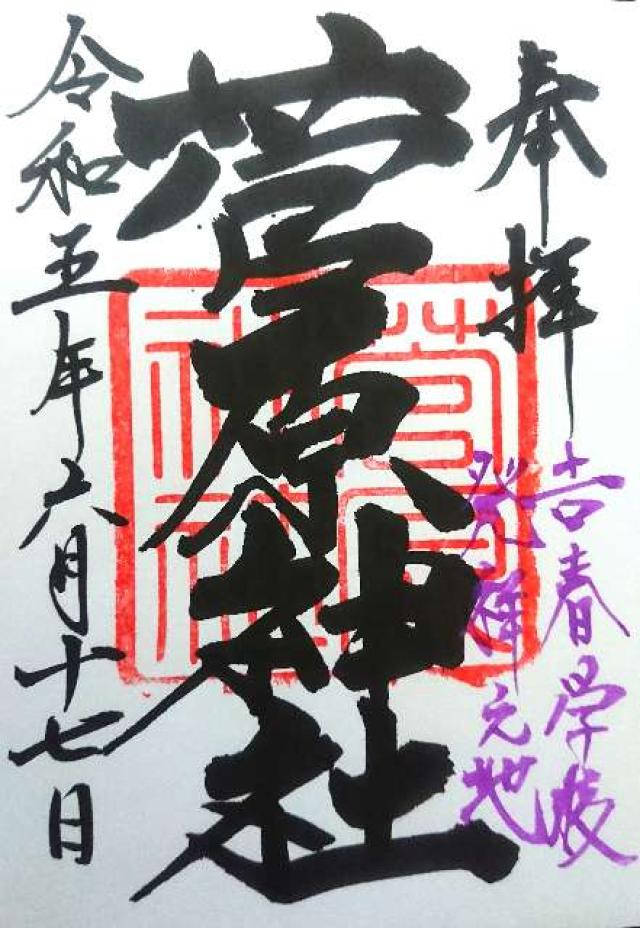 奉拝
吉春学校
発祥元地
菅原神社
令和五年六月十七日